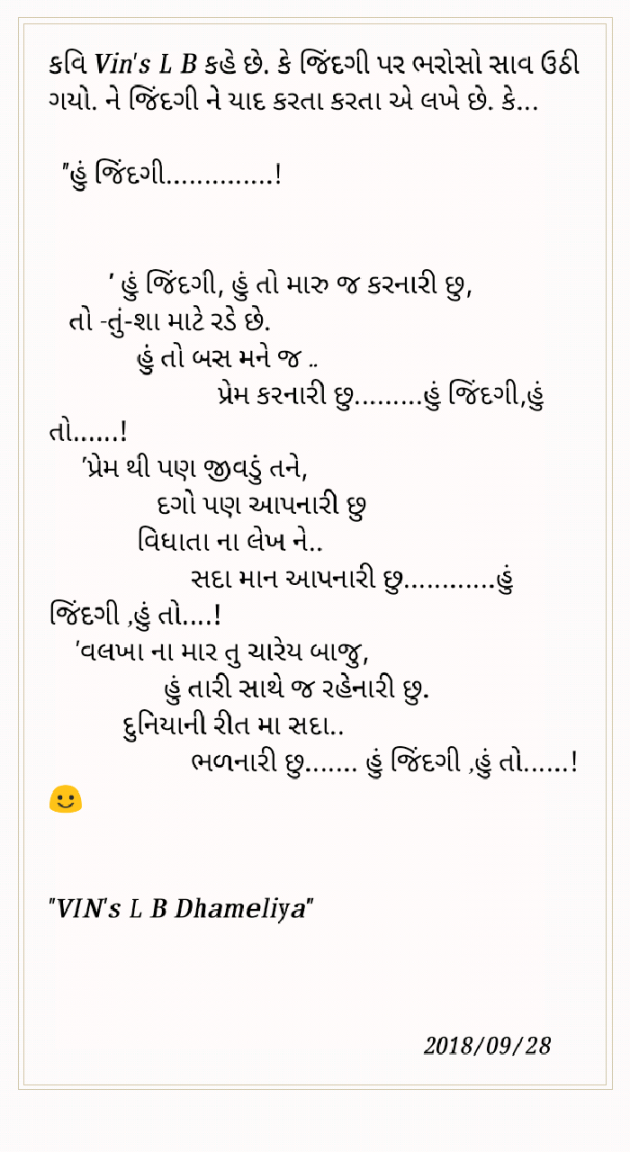 કવિ Vin's L B કહે છે. કે જિંદગી પર ભરોસો સાવ ઉઠી
ગયો. ને જિંદગી ને યાદ કરતા કરતા એ લખે છે. કે...
"હું જિંદગી..............!
' હું જિંદગી, હું તો મારુ જ કરનારી છુ,
તો -તું-શા માટે રડે છે.
હું તો બસ મને જ ..
પ્રેમ કરનારી છુ.........હું જિંદગી,હું
તો......!
'પ્રેમ થી પણ જીવડું તને,
દગો પણ આપનારી છુ
વિધાતા ના લેખ ને..
સદા માન આપનારી છુ............હું
જિંદગી ,હું તો....!
'વલખા ના માર તુ ચારેય બાજુ,
હું તારી સાથે જ રહેનારી છુ.
દુનિયાની રીત મા સદા..
ભળનારી છુ....... હું જિંદગી ,હું તો......!
🙂
"VIN's L B Dhameliya"
2018/09/28